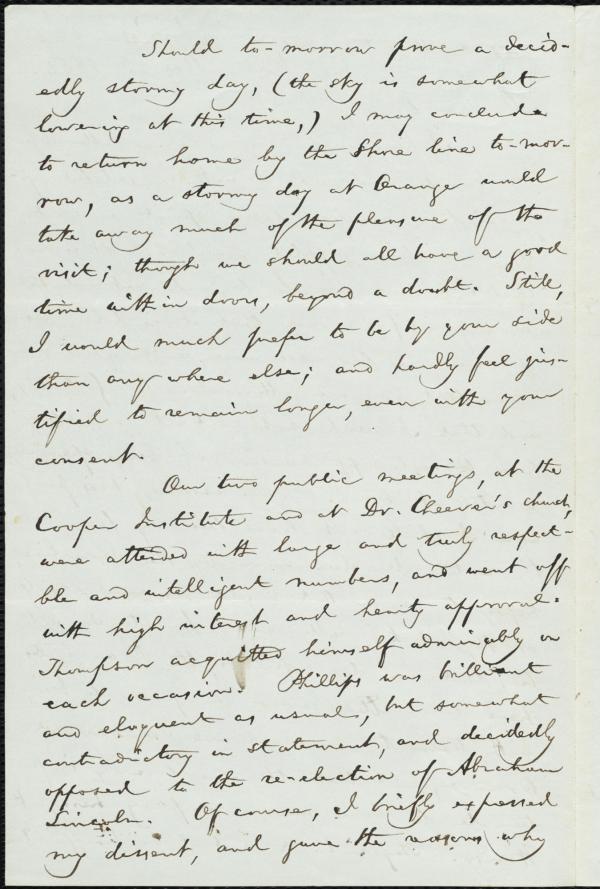 Should to-morrow prove a decid-
edly stormy day, (the sky is somewhat
lowering at this time,) I may conclude
to return home by the Shore line to-mor-
row, as a stormy day at Orange would
take away much of the pleasure of the
visit; though we should all have a good
time with in doors, beyond a doubt. Still,
I would much prefer to be by your side
than any where else; and hardly feel jus-
tified to remain longer, even with your
consent.
Our two public meetings, at the
Cooper Institute and at Dr. Cheever's church,
were attended with large and truly respect-
ble and intelligent numbers, and went off
with high interest and hearty approval.
Thompson acquitted himself admirably on
each occasion. Phillips was brilliant
and eloquent as usual, but somewhat
contradictory in statement, and decidedly
opposed to the re-election of Abraham
Lincoln. Of course, I briefly expressed
my dissent, and gave the reasons why